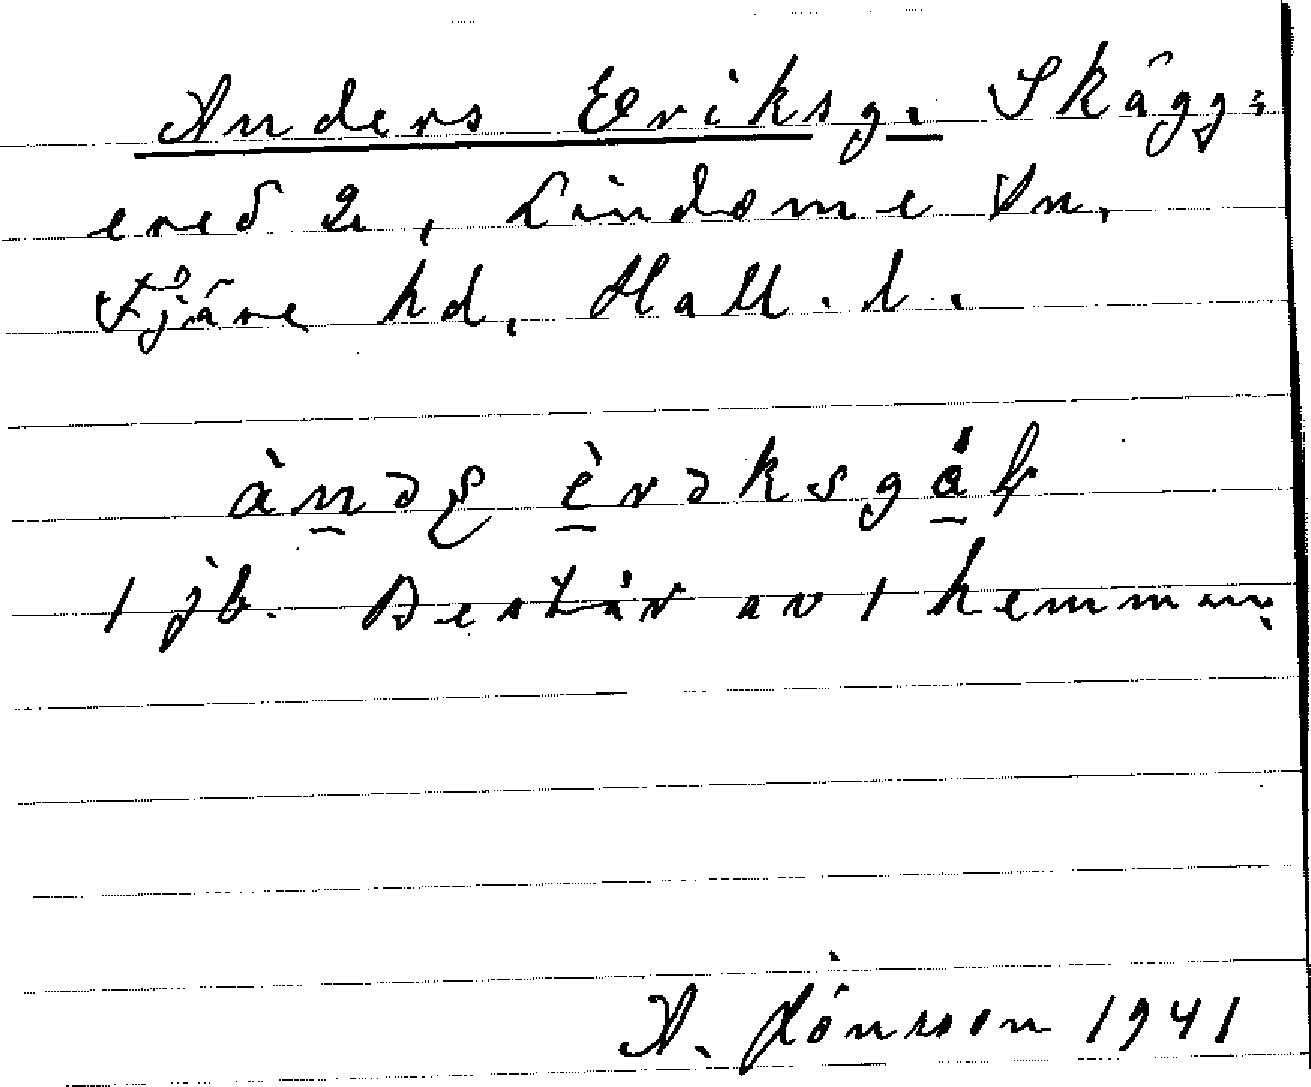 Anders Eriksg. Skägg-
ered 2, Lindome sn,
Fjäre hd, Hall. l.
1 jb. Består av 1 hemman.
A. Jönsson 1941